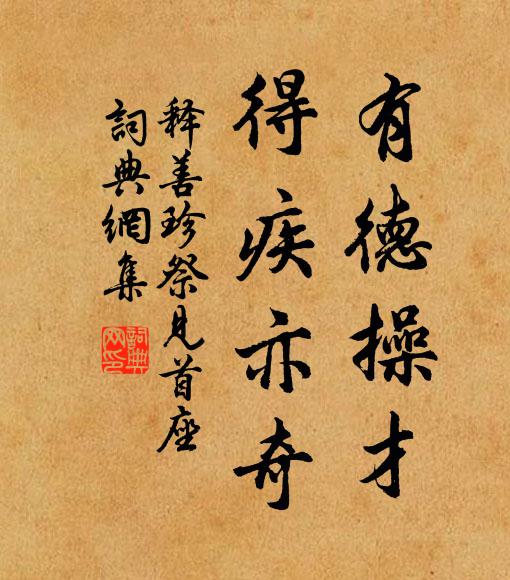 有德操才
得疾亦奇
释善珍祭見首座
詞典網集
詞典
网印